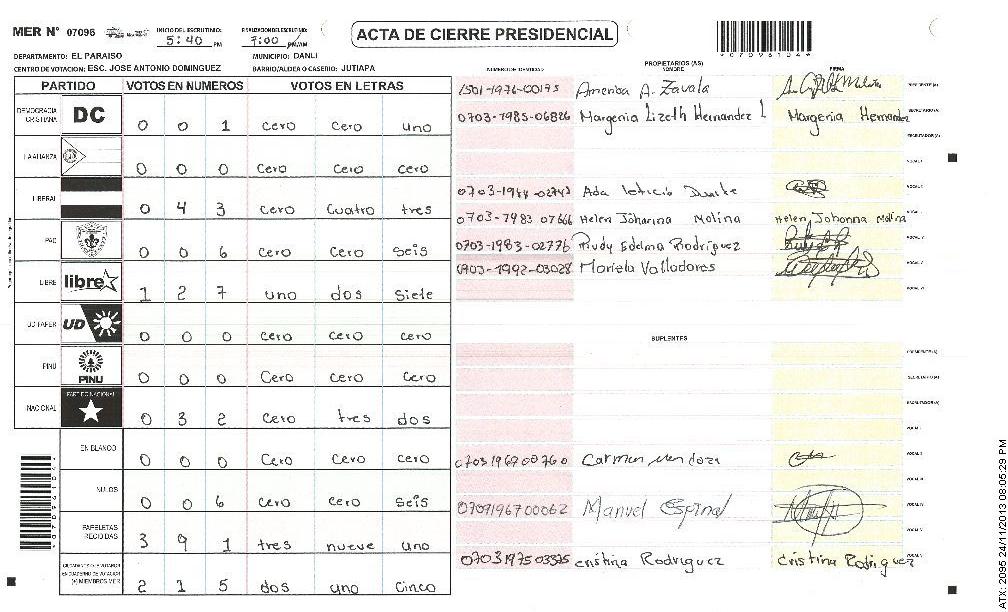 MER N° 07096 INICIO DEL ESCRUTINIO: 5:40 PM FINALIZACION DEL ESCRUTINIO: 7:00 PM/AM
ACTA DE CIERRE PRESIDENCIAL
DEPARTAMENTO: EL PARAISO MUNICIPIO: DANLI
CENTRO DE VOTACION: ESC. JOSE ANTONIO DOMINGUEZ BARRIO/ALDEA O CASERIO: JUTIAPA
PARTIDO VOTOS EN NUMEROS VOTOS EN LETRAS
DEMOCRACIA CRISTIANA DC 0 0 1 cero cero uno
LA ALIANZA 0 0 0 cero cero cero
LIBERAL 0 4 3 cero cuatro tres
PAC 0 0 6 cero cero seis
LIBRE libre 1 2 7 uno dos siete
UD FAPER UD 0 0 0 cero cero cero
PINU PINU 0 0 0 cero cero cero
NACIONAL PARTIDO NACIONAL 0 3 2 cero tres dos
EN BLANCO 0 0 0 cero cero cero
NULOS 0 0 6 cero cero seis
PAPELETAS RECIBIDAS 3 9 1 tres nueve uno
CIUDADANOS QUE VOTARON EN CUADERNO DE VOTACION (+) MIEMBROS MER 2 1 5 dos uno cinco
PROPIETARIOS (AS)
NUMERO DE IDENTIDAD NOMBRE FIRMA
1501-1976-00195 America A. Zavala PRESIDENTE (A)
0703-1985-06826 Margenia Lizeth Hernandez L Margenia Hernandez SECRETARIO (A)
ESCRUTADOR (A)
VOCAL I
0703-1944-02743 Ada leticia Duarte
0703-1983 07666 Helen Joharina Molina Helen Johanna Molina
0703-1983-02776 Rudy Edelma Rodríguez
0703-1992-03028 Mariela Valladares
SUPLENTES
PRESIDENTE (A)
SECRETARIO (A)
ESCRUTADOR (A)
0703196900760 Carmen Mendoza
0709196700062 Manuel Espinal
0703197503375 cristina Rodriguez Cristina Rodriguez
ATX: 2095 24/11/2013 08:05:29 PM